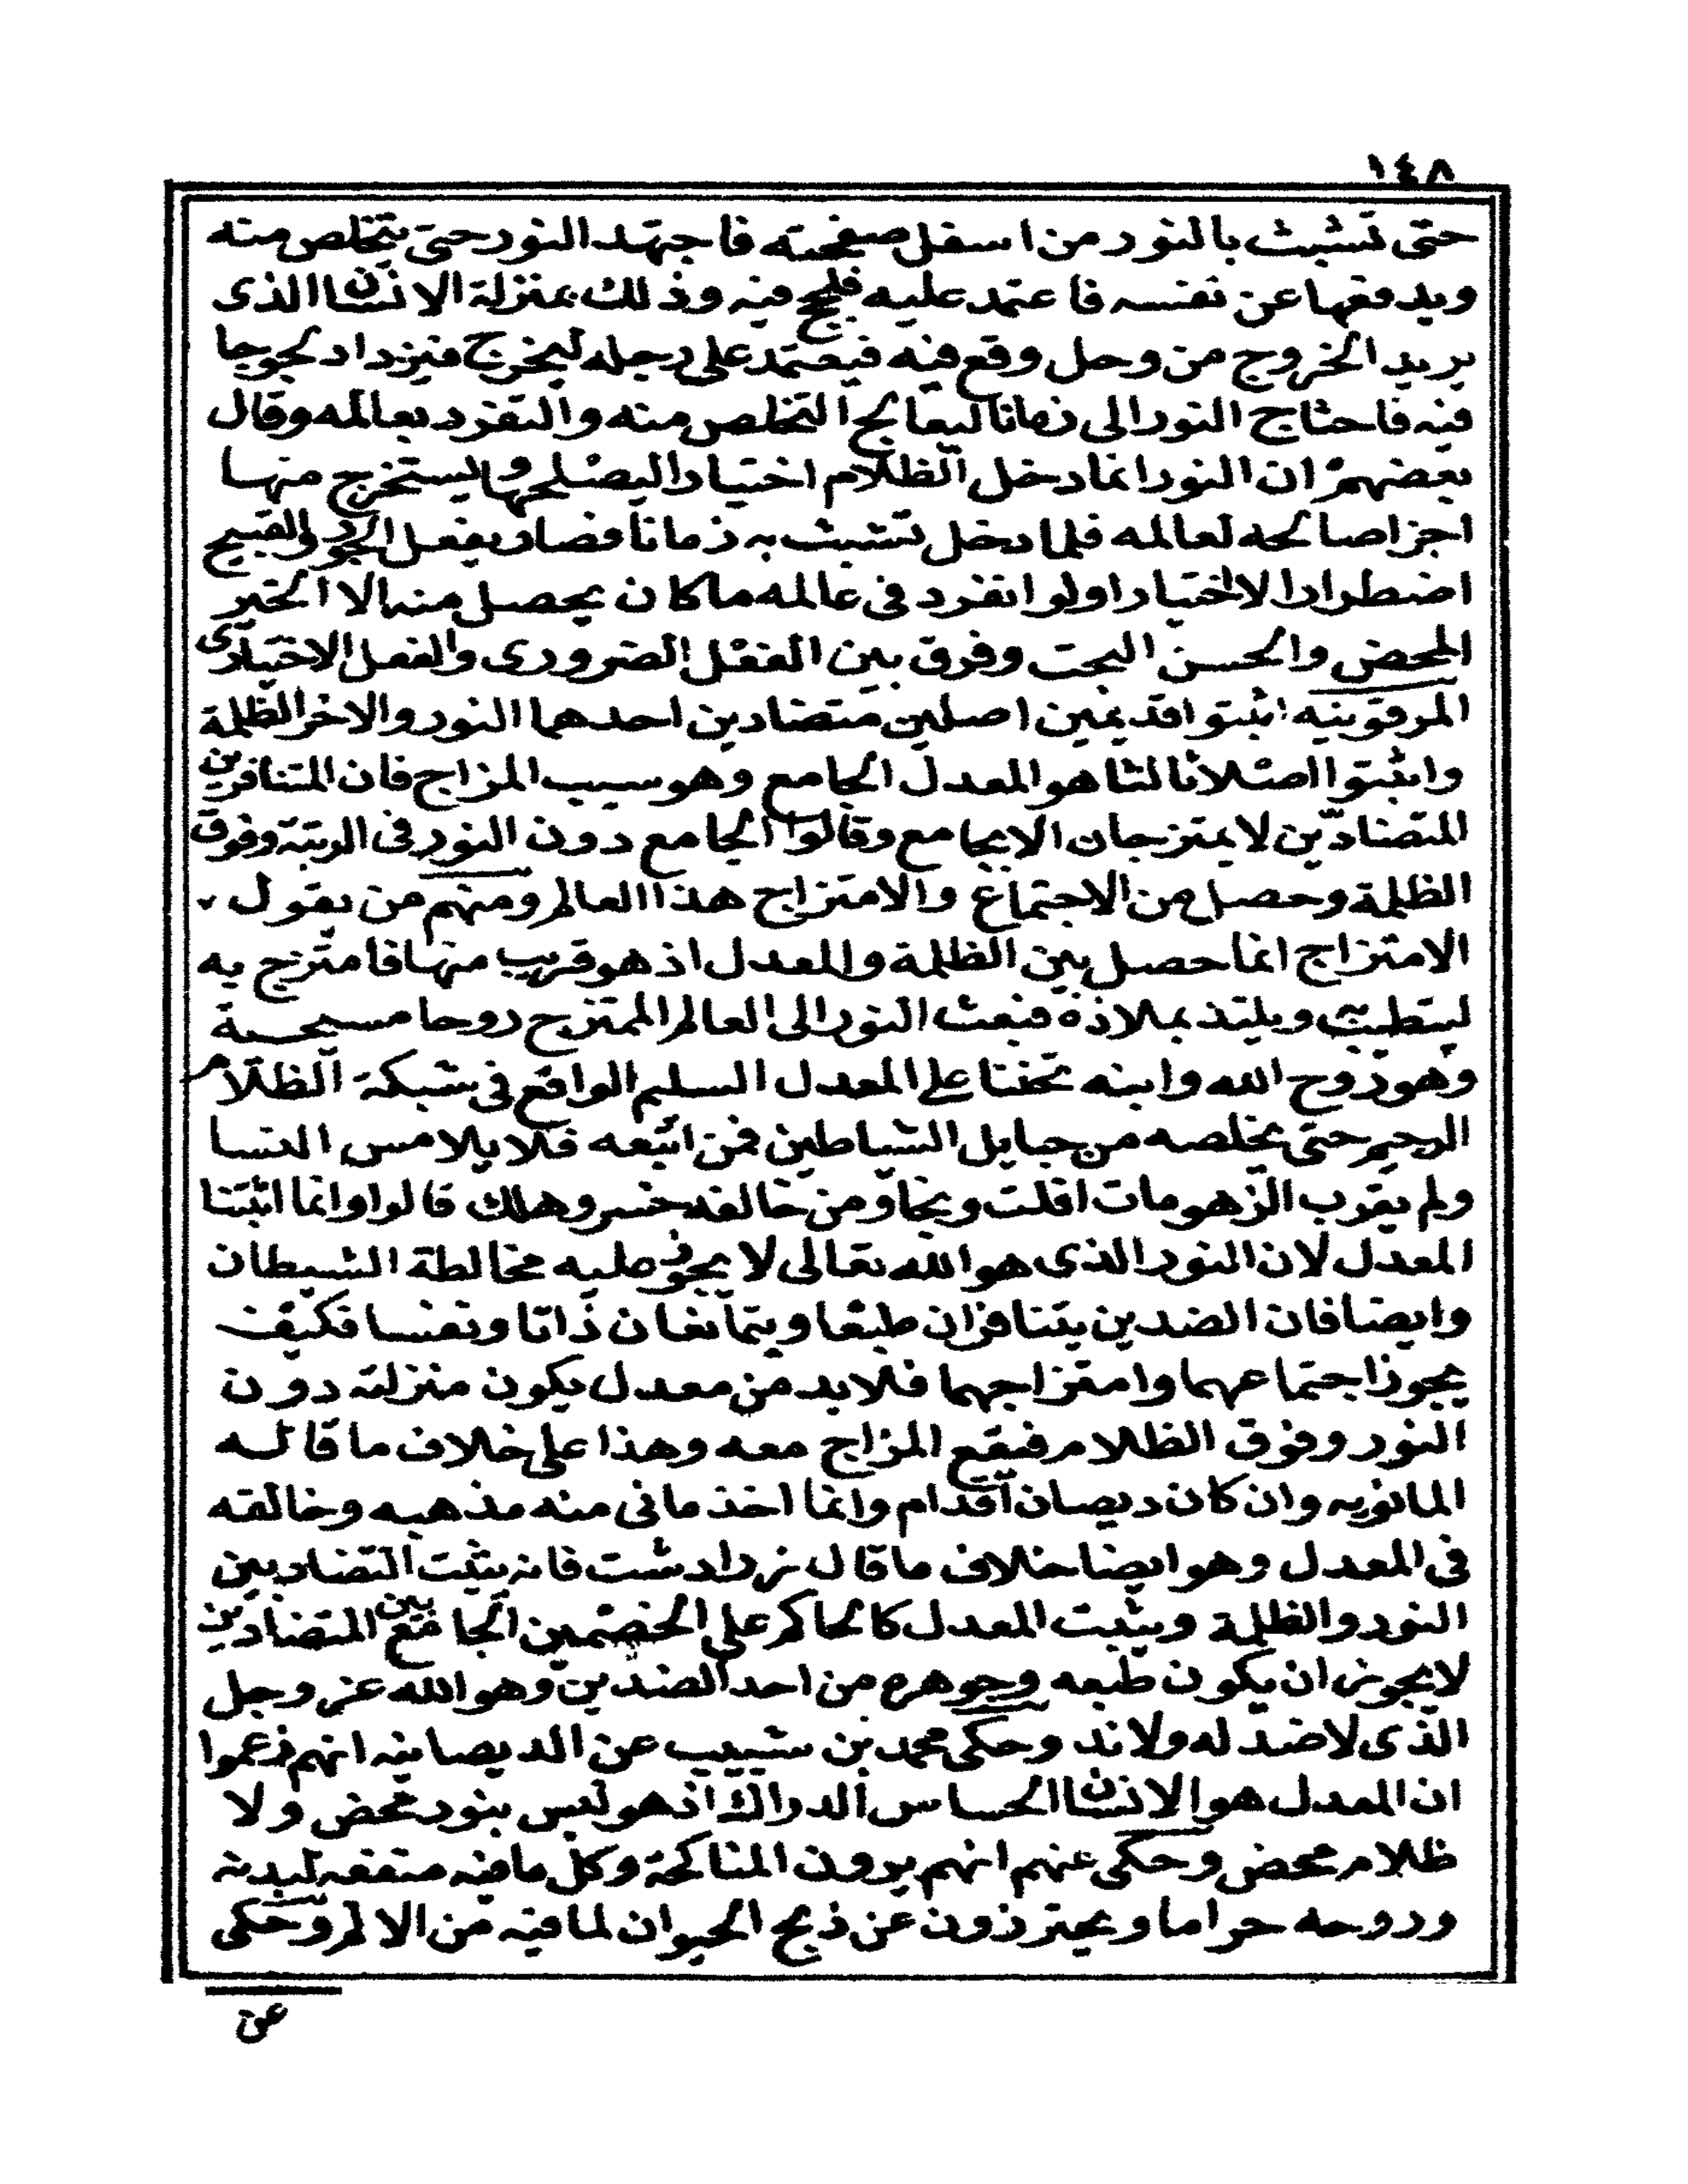 ١٤٨
حتى تشبث بالنور من اسفل صفحته فاجتهد النور حتى يتخلص منه
ويدفعها عن نفسه فاعتمد عليه فلجج فيه وذلك بمنزلة الانسان الذى
يريد الخروج من وحل وقع فيه فيعتمد على رجله ليخرج فيزداد لجوجا
فيه فاحتاج النور الى زمانا ليعالج التخلص منه والتفرد بعالمه وقال
بعضهم ان النور انما دخل الظلام اختيارا ليصلحها ويستخرج منها
اجزا صالحه لعالمه فلما دخل تشبث به زمانا فصار يفعل الجور والقبيح
اضطرارا لا اختيارا ولو انفرد فى عالمه ماكان يحصل منه الا الخير
المحض والحسن البحت وفرق بين الفعل الضرورى والفعل الاختيارى
المرقوينيه اثبتوا قديمين اصلين متضادين احدهما النور والاخر الظلمة
واثبتوا اصلا ثالثا هو المعدل الجامع وهو سبب المزاج فان المتنافرين
المتضادين لا يمتزجان الا بجامع وقالوا الجامع دون النور فى الرتبة وفوق
الظلمة وحصل من الاجتماع والامتزاج هذا العالم ومنهم من يقول
الامتزاج انما حصل بين الظلمة والمعدل اذ هو قريب منها فامتزج به
ليتطيب ويلتذ بملاذه فبعث النور الى العالم الممتزج روحا مسيحية
وهو روح الله وابنه تحننا على المعدل السليم الواقع فى شبكة الظلام
الرجيم حتى يخلصه من حبايل الشياطين فمن اتبعه فلا يلامس النسا
ولم يقرب الزهومات افلت ونجا ومن خالفه خسر وهلك قالوا وانما اثبتنا
المعدل لان النور الذى هو الله تعالى لا يجوز عليه مخالطة الشيطان
وايضا فان الضدين يتنافران طبعا ويتمانعان ذاتا ونفسا فكيف
يجوز اجتماعهما وامتزاجهما فلا بد من معدل يكون منزلته دون
النور وفوق الظلام فيقع المزاج معه وهذا على خلاف ما قاله
المانويه وان كان ديصان اقدام وانما اخذ مانى منه مذهبه وخالفه
فى المعدل وهو ايضا خلاف ما قال زرادشت فانه يثبت التضاد بين
النور والظلمة ويثبت المعدل كالحاكم على الخصمين الجامع بين المتضادين
لا يجوز ان يكون طبعه وجوهره من احد الضدين وهو الله عز وجل
الذى لا ضد له ولا ند وحكى محمد بن شبيب عن الديصانيه انهم زعموا
ان المعدل هو الانسان الحساس الدراك اذ هو ليس بنور محض ولا
ظلام محض وحكى عنهم انهم يرون المناكحة وكل ما فيه منفعه لبدنه
وروحه حراما ويحترزون عن ذبح الحيوان لما فيه من الالم وحكى
عن